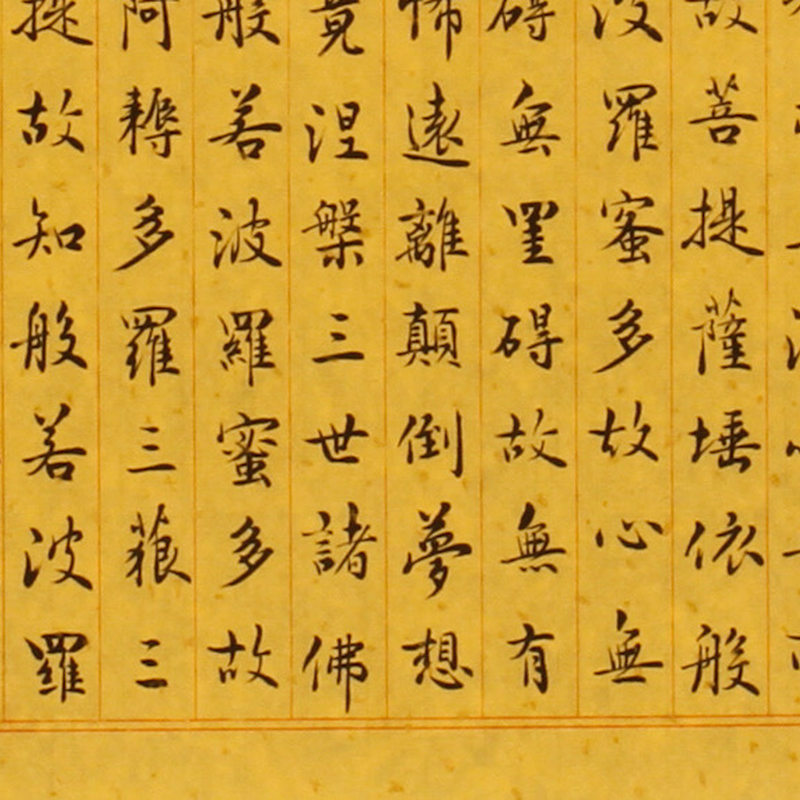 故菩提薩埵依般
波羅蜜多故心無
碍無罣碍故無有
怖遠離顛倒夢想
竟涅槃三世諸佛
般若波羅蜜多故
阿耨多羅三藐三
提故知般若波羅